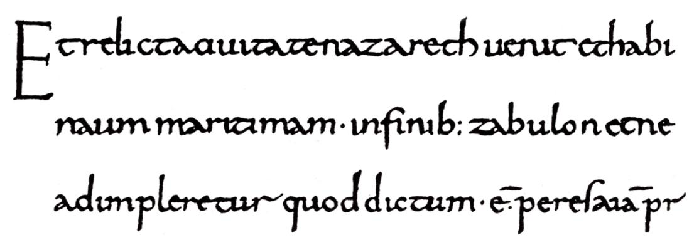 Et relicta ciuitate nazareth uenit et habi
naum maritimam· infinib: zabulon et ne
adimpleretur quod dictum· ē· per esaiā pr